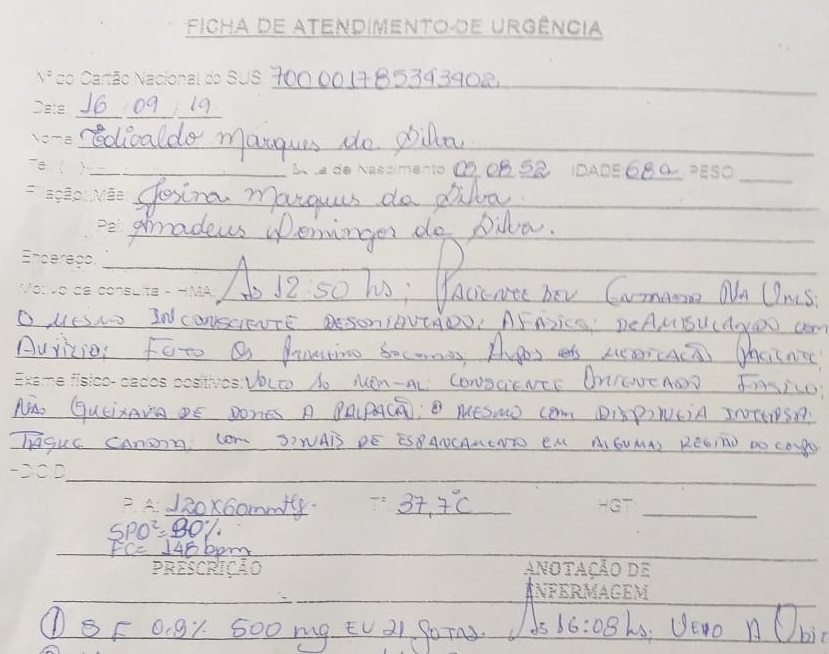 FICHA DE ATENDIMENTO DE URGÊNCIA
Nº do Cartão Nacional do SUS 700001785393908
Data 16 09 19
Nome Edivaldo Marques da Silva
Te. ( ) Data de Nascimento 09 08 52 IDADE 68a PESO
Filiação: Mãe Josina Marques da Silva
Pai Amadeus Domingos da Silva.
Endereço:
Motivo da consulta - HMA Às 12:50 hs; Paciente deu Entrada na
O mesmo Inconsciente Desorientado; Afásico; Deambulando com
Auxizio; Feito Os Primeiros Socorros, Após medicação Paciente
Exame físico - dados positivos: Volto Ao Consciente Orientado Fasico;
Não Queixava de dores A Palpação; O mesmo com Dispineia Intensa
com sinais de espancamento em algumas região do corpo
HD CID
P.A: 120x60mmHg. Tº 37,7°C HGT:
SPO²= 90%.
FC= 148 bpm
PRESCRIÇÃO ANOTAÇÃO DE
ENFERMAGEM
① S F 0.9% 500 mg EV 21 gotas. Às 16:08 hs; Veio A Obi